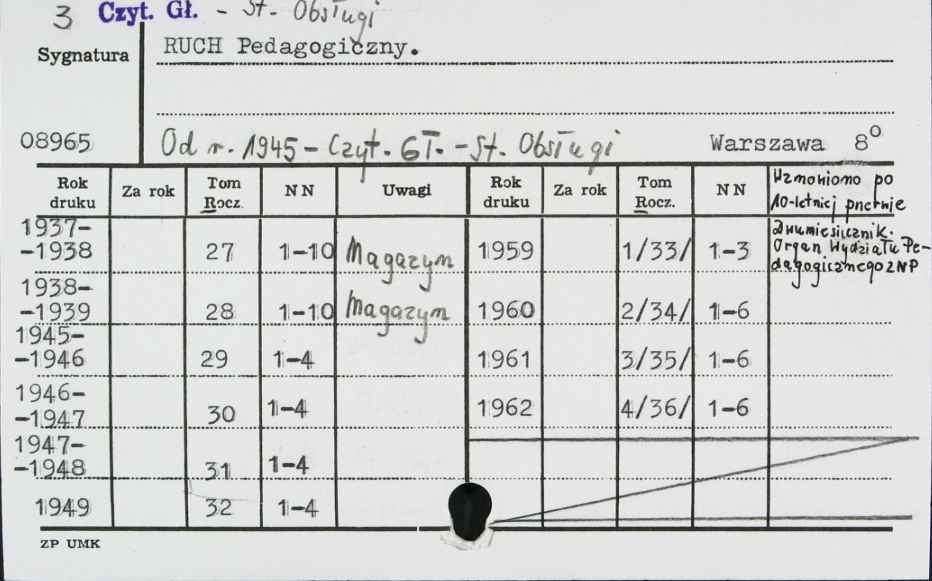 3 Czyt. Gł. - St. Obsługi
Sygnatura RUCH Pedagogiczny.
08965 Od r. 1945 - Czyt. Gł. - St. Obsługi Warszawa 8°
Rok druku Za rok Tom Rocz. N N Uwagi Rok druku Za rok Tom Rocz. N N Wznowiono po
10-letniej przerwie
1937-
-1938 27 1-10 Magazyn 1959 1/33/ 1-3 Dwumiesięcznik.
Organ Wydziału Pe-
dagogicznego ZNP
1938-
-1939 28 1-10 Magazyn 1960 2/34/ 1-6
1945-
-1946 29 1-4 1961 3/35/ 1-6
1946-
-1947 30 1-4 1962 4/36/ 1-6
1947-
-1948 31 1-4
1949 32 1-4
ZP UMK